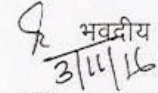 भवदीय
3/11/16